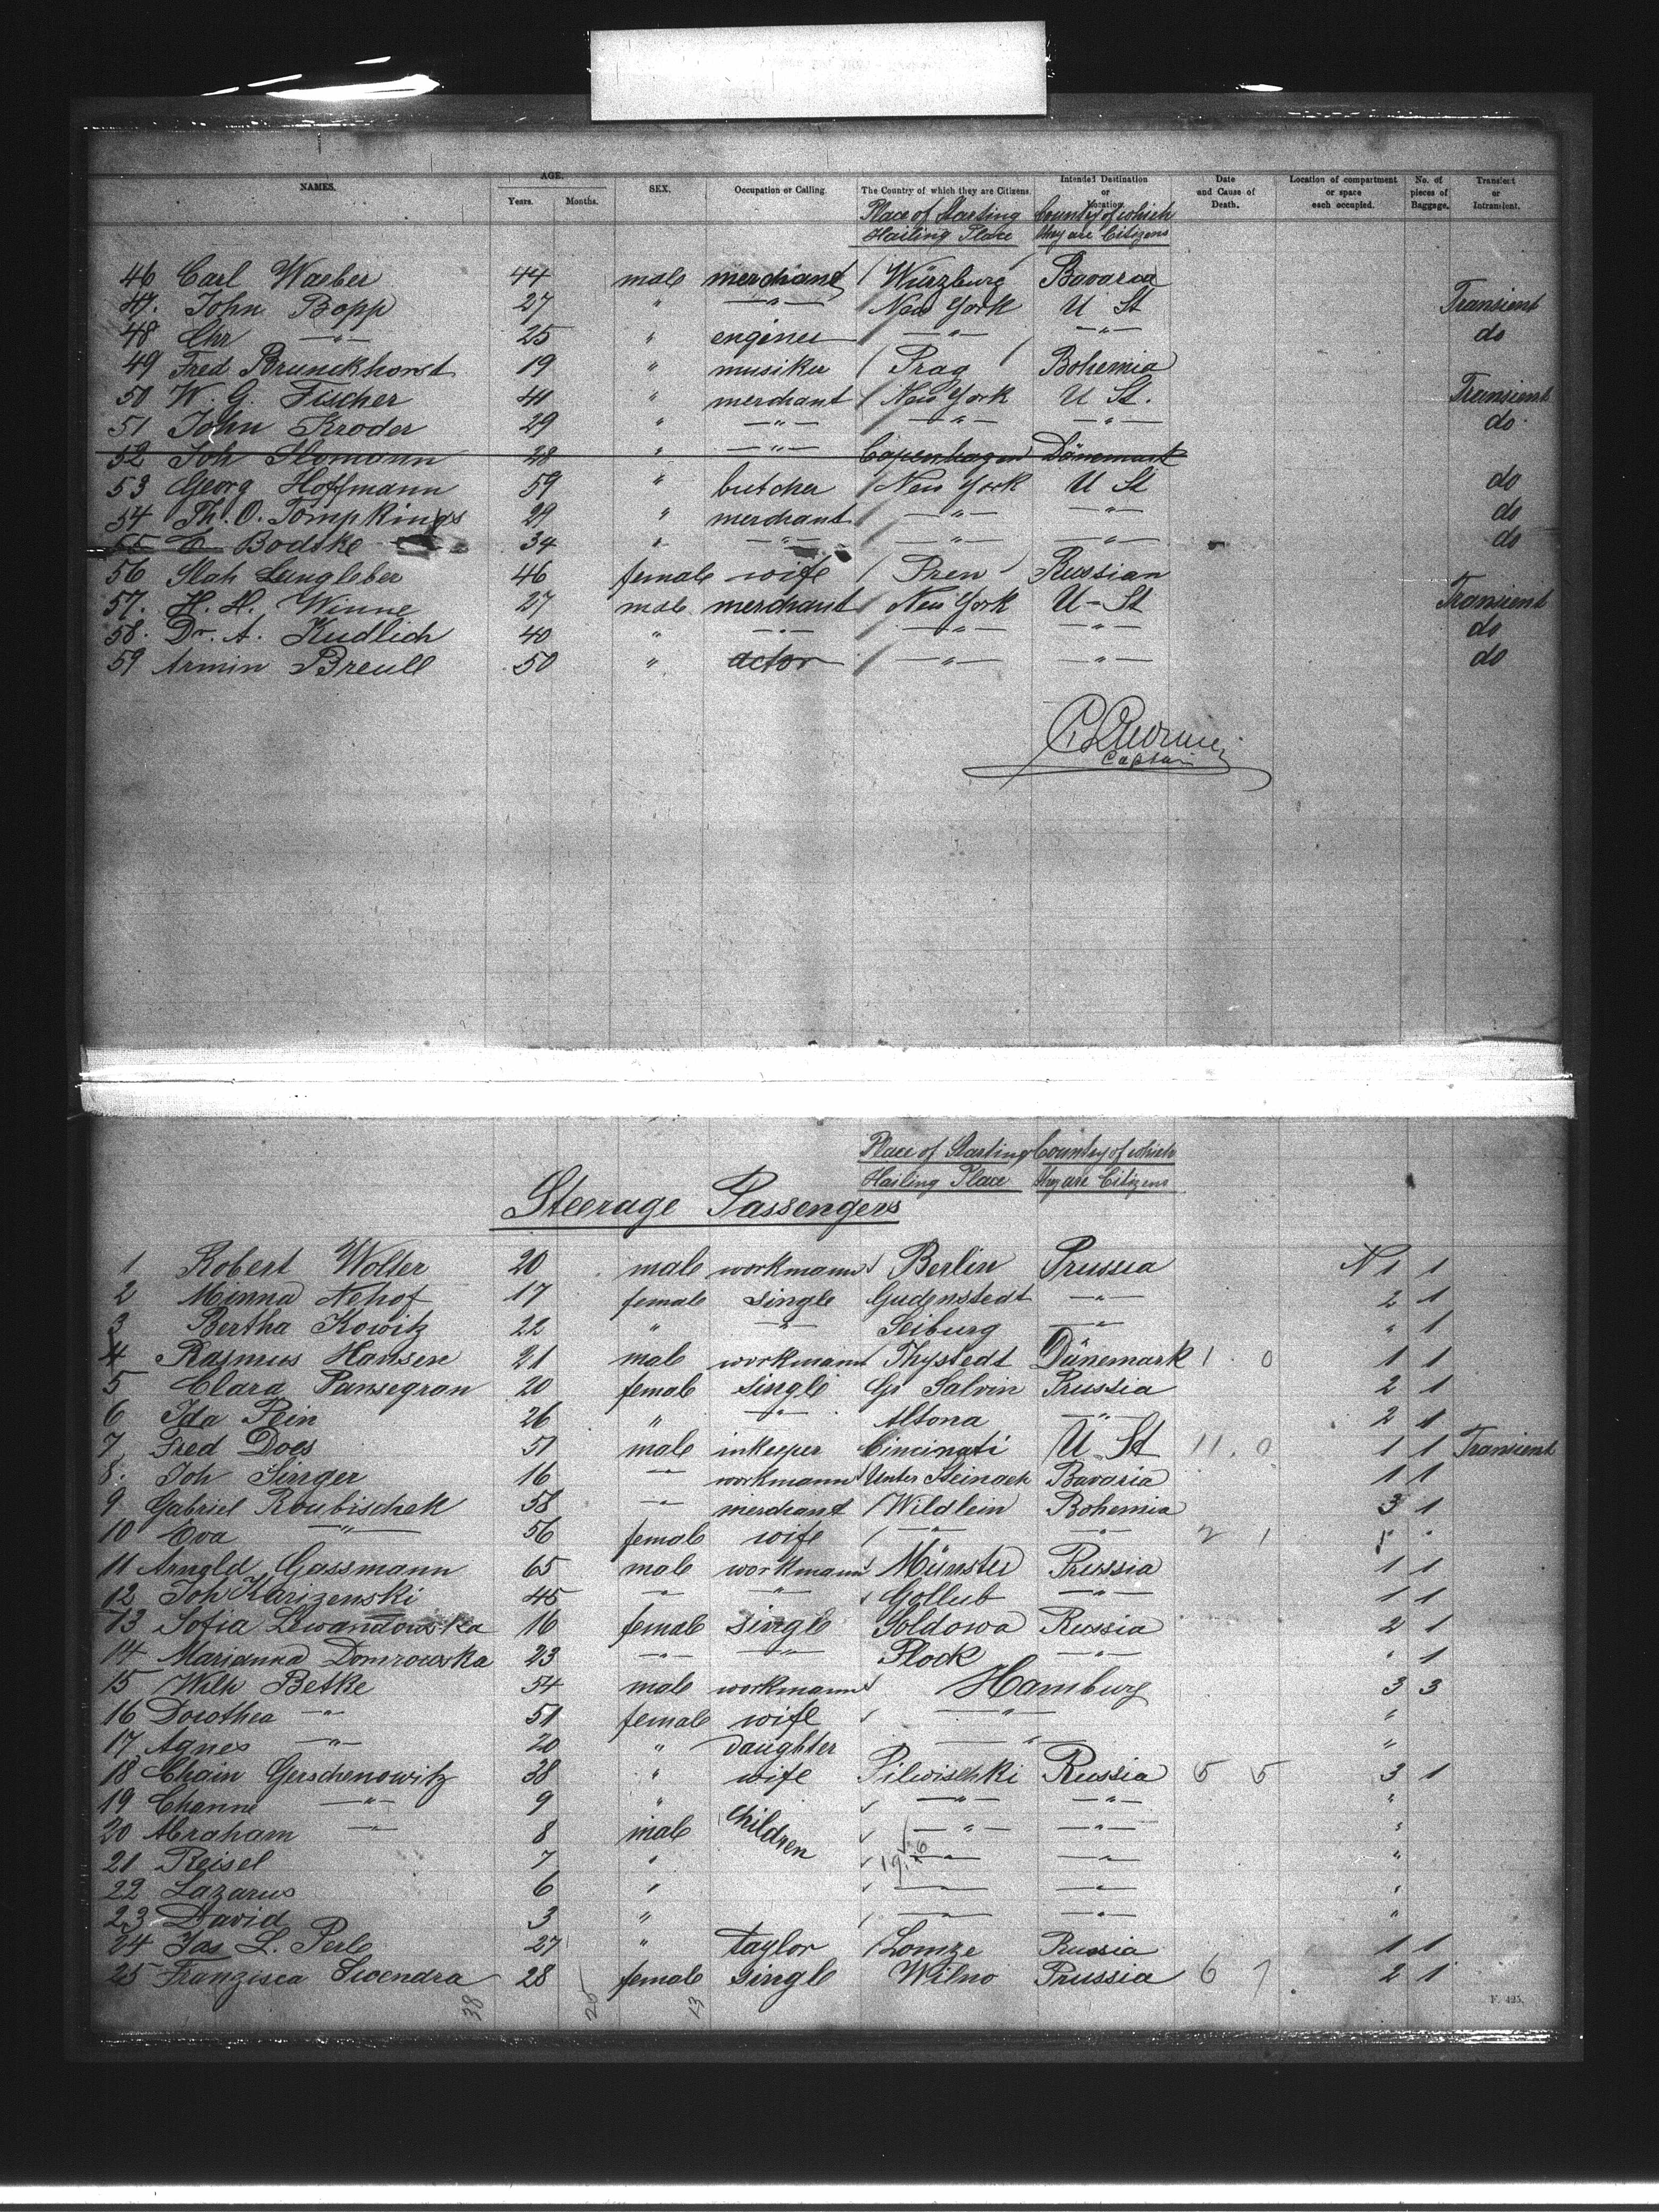 NAMES. AGE. Years. Months. SEX. Occupation or Calling. The Country of which they are Citizens. Intended Destination or Location. Date and Cause of Death. Location of compartment or space each occupied. No. of pieces of Baggage. Transient or Intransient.
Place of Starting Country of which
Hailing Place they are Citizens
46 Carl Waeber 44 male merchant Würzburg Bavaria
47. John Bopp 27 " —"— New York U St Transient
48 Chr —"— 25 " engineer —"— —"— do
49 Fred Brunckhorst 19 " musiker Prag Bohemia
50 W. G. Fischer 41 " merchant New York U St. Transient
51 John Kroder 29 " —"— —"— —"— do
52 Joh Homann 28 " —"— Copenhagen Dänemark
53 Georg Hoffmann 59 " butcher New York U St do
54 Th. O. Tompkings 29 " merchant —"— —"— do
55 E Bodtke 34 " —"— —"— —"— do
56 Lungleber 46 female wife Pren Russian
57. H. H. Winne 27 male merchant New York U-St Transient
58. Dr. A. Kudlich 40 " —"— —"— —"— do
59 Armin Breull 50 " actor —"— —"— do
Captain
Place of Starting Country of which
Hailing Place they are Citizens
Steerage Passengers
1 Robert Wolter 20 male workmann Berlin Prussia N 1 1
2 Minna Nehof 17 female single Gudenstedt —"— 2 1
3 Bertha Kowitz 22 " —"— Seiburg —"— " 1
4 Rasmus Hansen 21 male workmann Thystedt Dänemark 1 0 1 1
5 Clara Pansegrau 20 female single Gr Salvin Prussia 2 1
6 Ida Pein 26 " —"— Altona —"— 2 1
7 Fred Does 51 male inkeeper Cincinati U St 11. 0 1 1 Transient
8. Joh Singer 16 —"— workmann Unter Steinach Bavaria 1 1
9 Gabriel Roubischek 58 —"— merchant Wildlein Bohemia 3 1
10 Eva —"— 56 female wife —"— —"— 2 1
11 Arnold Gassmann 65 male workmann Münster Prussia 1 1
12 Joh Karizenski 45 —"— —"— Gollub —"— 1 1
13 Sofia Lewandowska 16 female single Soldowa Russia 2 1
14 Marianna Domrowska 23 —"— —"— Plock —"— " 1
15 Wilh Betke 54 male workmann Hamburg 3 3
16 Dorothea —"— 51 female wife —"— "
17 Agnes —"— 20 " daughter —"— "
18 Chain Gerschenowitz 38 " wife Pilwischki Russia 5 5 3 1
19 Channe —"— 9 " children —"— —"— "
20 Abraham —"— 8 male —"— —"— "
21 Reisel 7 " —"— —"— "
22 Lazarus 6 " —"— —"— "
23 David 3 " —"— —"— "
24 Jas L. Perle 27 " taylor Lomze Russia 1 1
25 Franzisca Swendra 28 female single Wilno Prussia 6 7 2 1
38 25 13
F. 425.